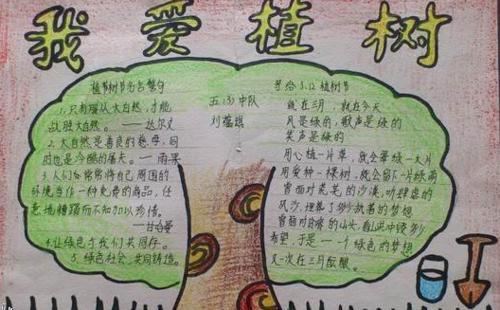 我爱植树
植树节名言警句
1.只有顺从大自然，才能
战胜大自然。——达尔文
2.大自然是善良的慈母，同
时也是冷酷的屠夫。——雨果
3.人们常常将自己周围的
环境当作一种免费的商品，任
意地糟蹋而不知加以珍惜。
——甘哈曼
4.让绿色与我们共同存。
5.绿色社会，共同铸造。
五(3)中队
刘蕴琪
写给3.12植树节
就在三月，就在今天
风是绿的，歌声是绿的
笑声是绿的
用心植一片草，就会翠绿一大片
用爱种一棵树，就会留下一片绿荫
面对荒芜的沙漠，听肆虐的
风沙，埋葬了多少执着的梦想
面对的山头，看洪中绕多少
希望，于是一个绿色的梦想
又一次在三月酝酿。